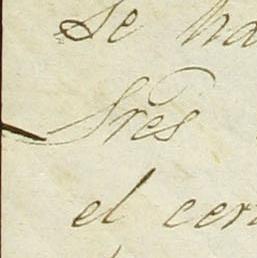 Se ha
Sres
el cer